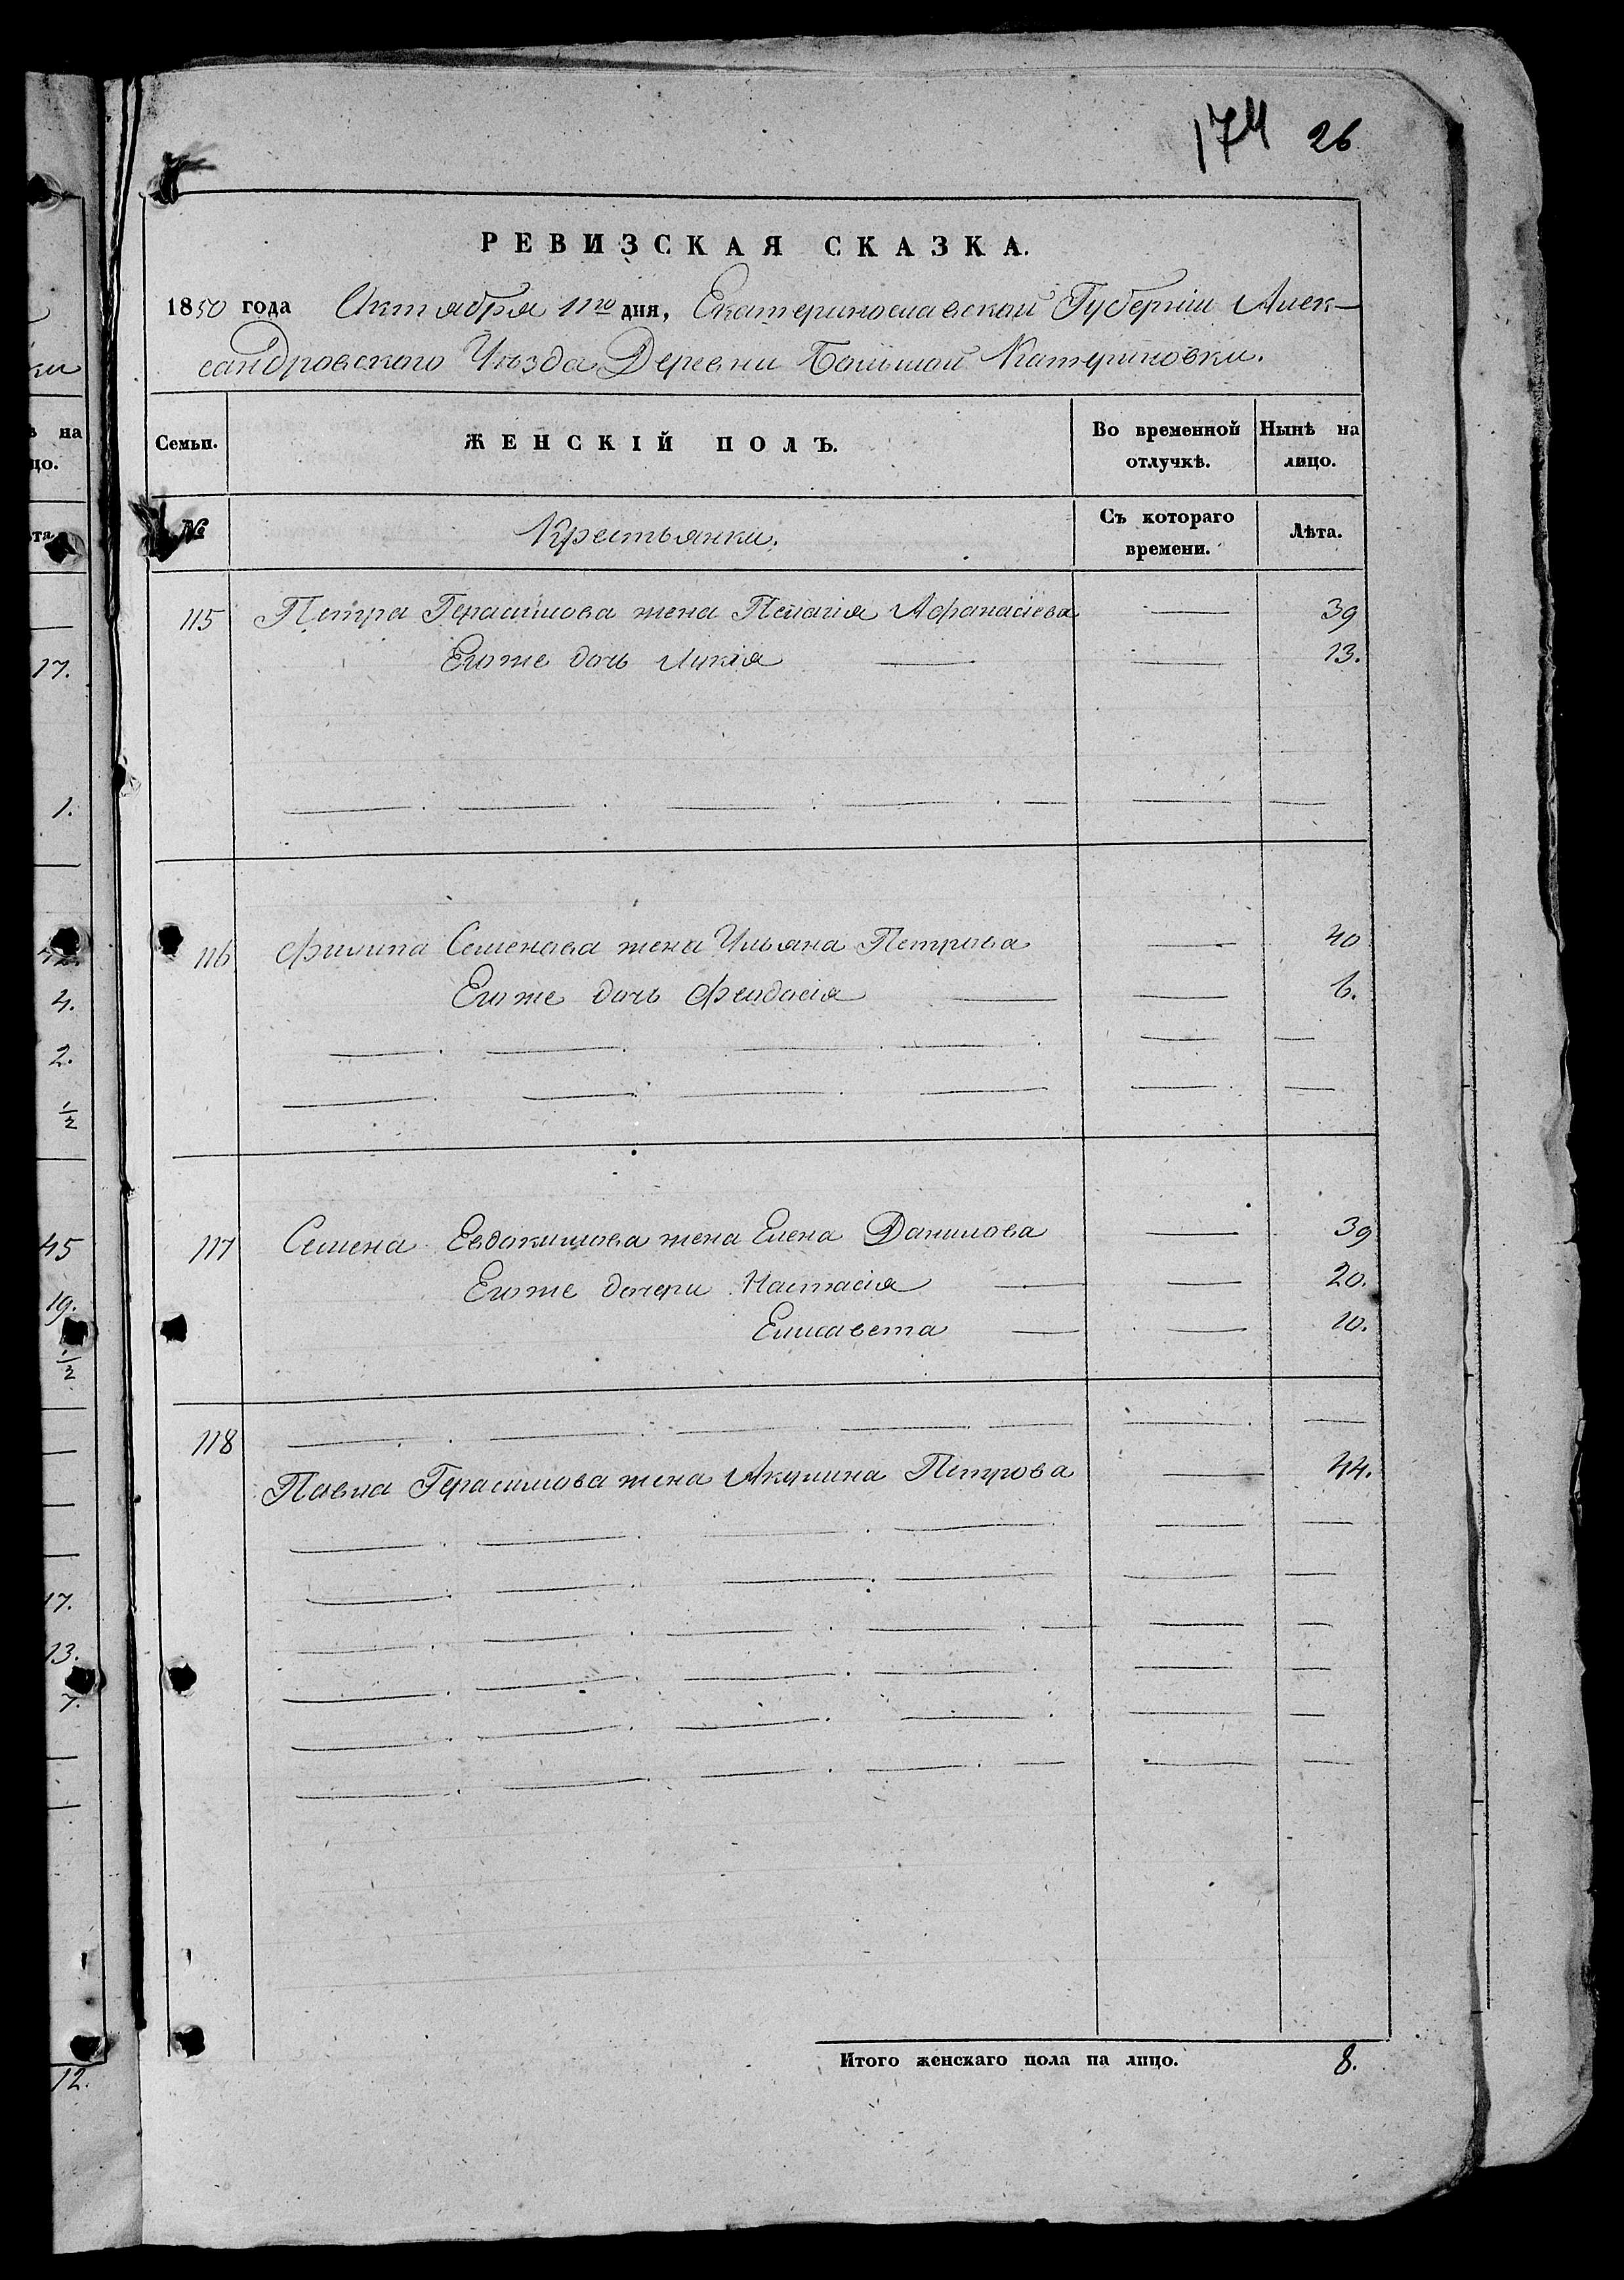 174 26
РЕВИЗСКАЯ СКАЗКА.
1850 года Октября 11го дня, Екатеринославской Губерніи Алек-
сандровского Уѣзда Деревни Большой Катериновки.
Семьи. ЖЕНСКІЙ ПОЛЪ. Во временной отлучкѣ. Нынѣ на лицо.
№ Крестьянки. Съ котораго времени. Лѣта.
115 Петра Герасимова жена Пелагія Афанасіева — 39
Егоже дочь Лукія — — 13.
116 Филипа Семенова жена Ульяна Петрова — 40
Егоже дочь Феодосія — — 6.
117 Семена Евдокимова жена Елена Данилова — 39
Егоже дочери Настасія — — 20.
Елисавета — — 10.
118
Павла Герасимова жена Акулина Петрова — 44.
Итого женскаго пола на лицо. 8.